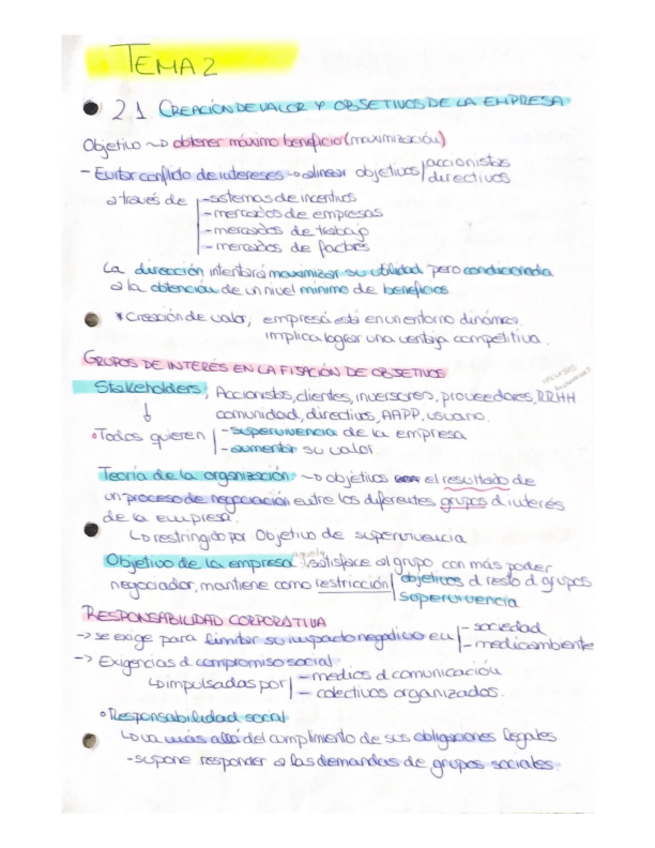 TEMA 2
2.1 CREACIÓN DE VALOR Y OBJETIVOS DE LA EMPRESA
Objetivo ~> obtener máximo beneficio (maximización)
- Evitar conflicto de intereses -> alinear objetivos | accionistas
directivos
a través de | - sistemas de incentivos
- mercados de empresas
- mercados de trabajo
- mercados de factores
La dirección intentará maximizar su utilidad pero condicionada
a la obtención de un nivel mínimo de beneficios.
* Creación de valor, empresa está en un entorno dinámico.
implica lograr una ventaja competitiva.
GRUPOS DE INTERÉS EN LA FIJACIÓN DE OBJETIVOS
Stakeholders, Accionistas, clientes, inversores, proveedores, RRHH
recursos
comunidad, directivos, AAPP, usuario.
Todos quieren | - supervivencia de la empresa
- aumentar su valor
Teoría de la organización ~> objetivos el resultado de
un proceso de negociación entre los diferentes grupos d interés
de la empresa.
↳ restringido por Objetivo de supervivencia
Objetivo de la empresa, aquel satisface al grupo con más poder
negociador, mantiene como restricción | objetivos d resto d grupos
supervivencia
RESPONSABILIDAD CORPORATIVA
-> se exige para limitar su impacto negativo en | - sociedad
- medioambiente
-> Exigencias d compromiso social
↳ impulsadas por | - medios d comunicación
- colectivos organizados.
° Responsabilidad social
↳ va más allá del cumplimiento de sus obligaciones legales
- supone responder a las demandas de grupos sociales.